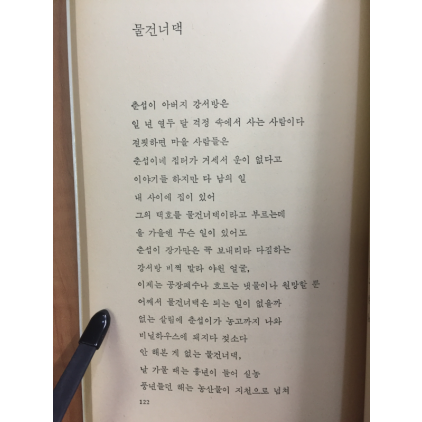 물건너댁
춘섭이 아버지 강서방은
일 년 열두 달 걱정 속에서 사는 사람이다
걸핏하면 마을 사람들은
춘섭이네 집터가 거세서 운이 없다고
이야기들 하지만 다 남의 일
내 사이에 집이 있어
그의 택호를 물건너댁이라고 부르는데
올 가을엔 무슨 일이 있어도
춘섭이 장가만은 꼭 보내리라 다짐하는
강서방 비쩍 말라 야윈 얼굴,
이제는 공장폐수나 흐르는 냇물이나 원망할 뿐
어째서 물건너댁은 되는 일이 없을까
없는 살림에 춘섭이가 농고까지 나와
비닐하우스에 돼지다 젖소다
안 해본 게 없는 물건너댁,
날 가물 해는 흉년이 들어 실농
풍년들던 해는 농산물이 지천으로 넘쳐
122